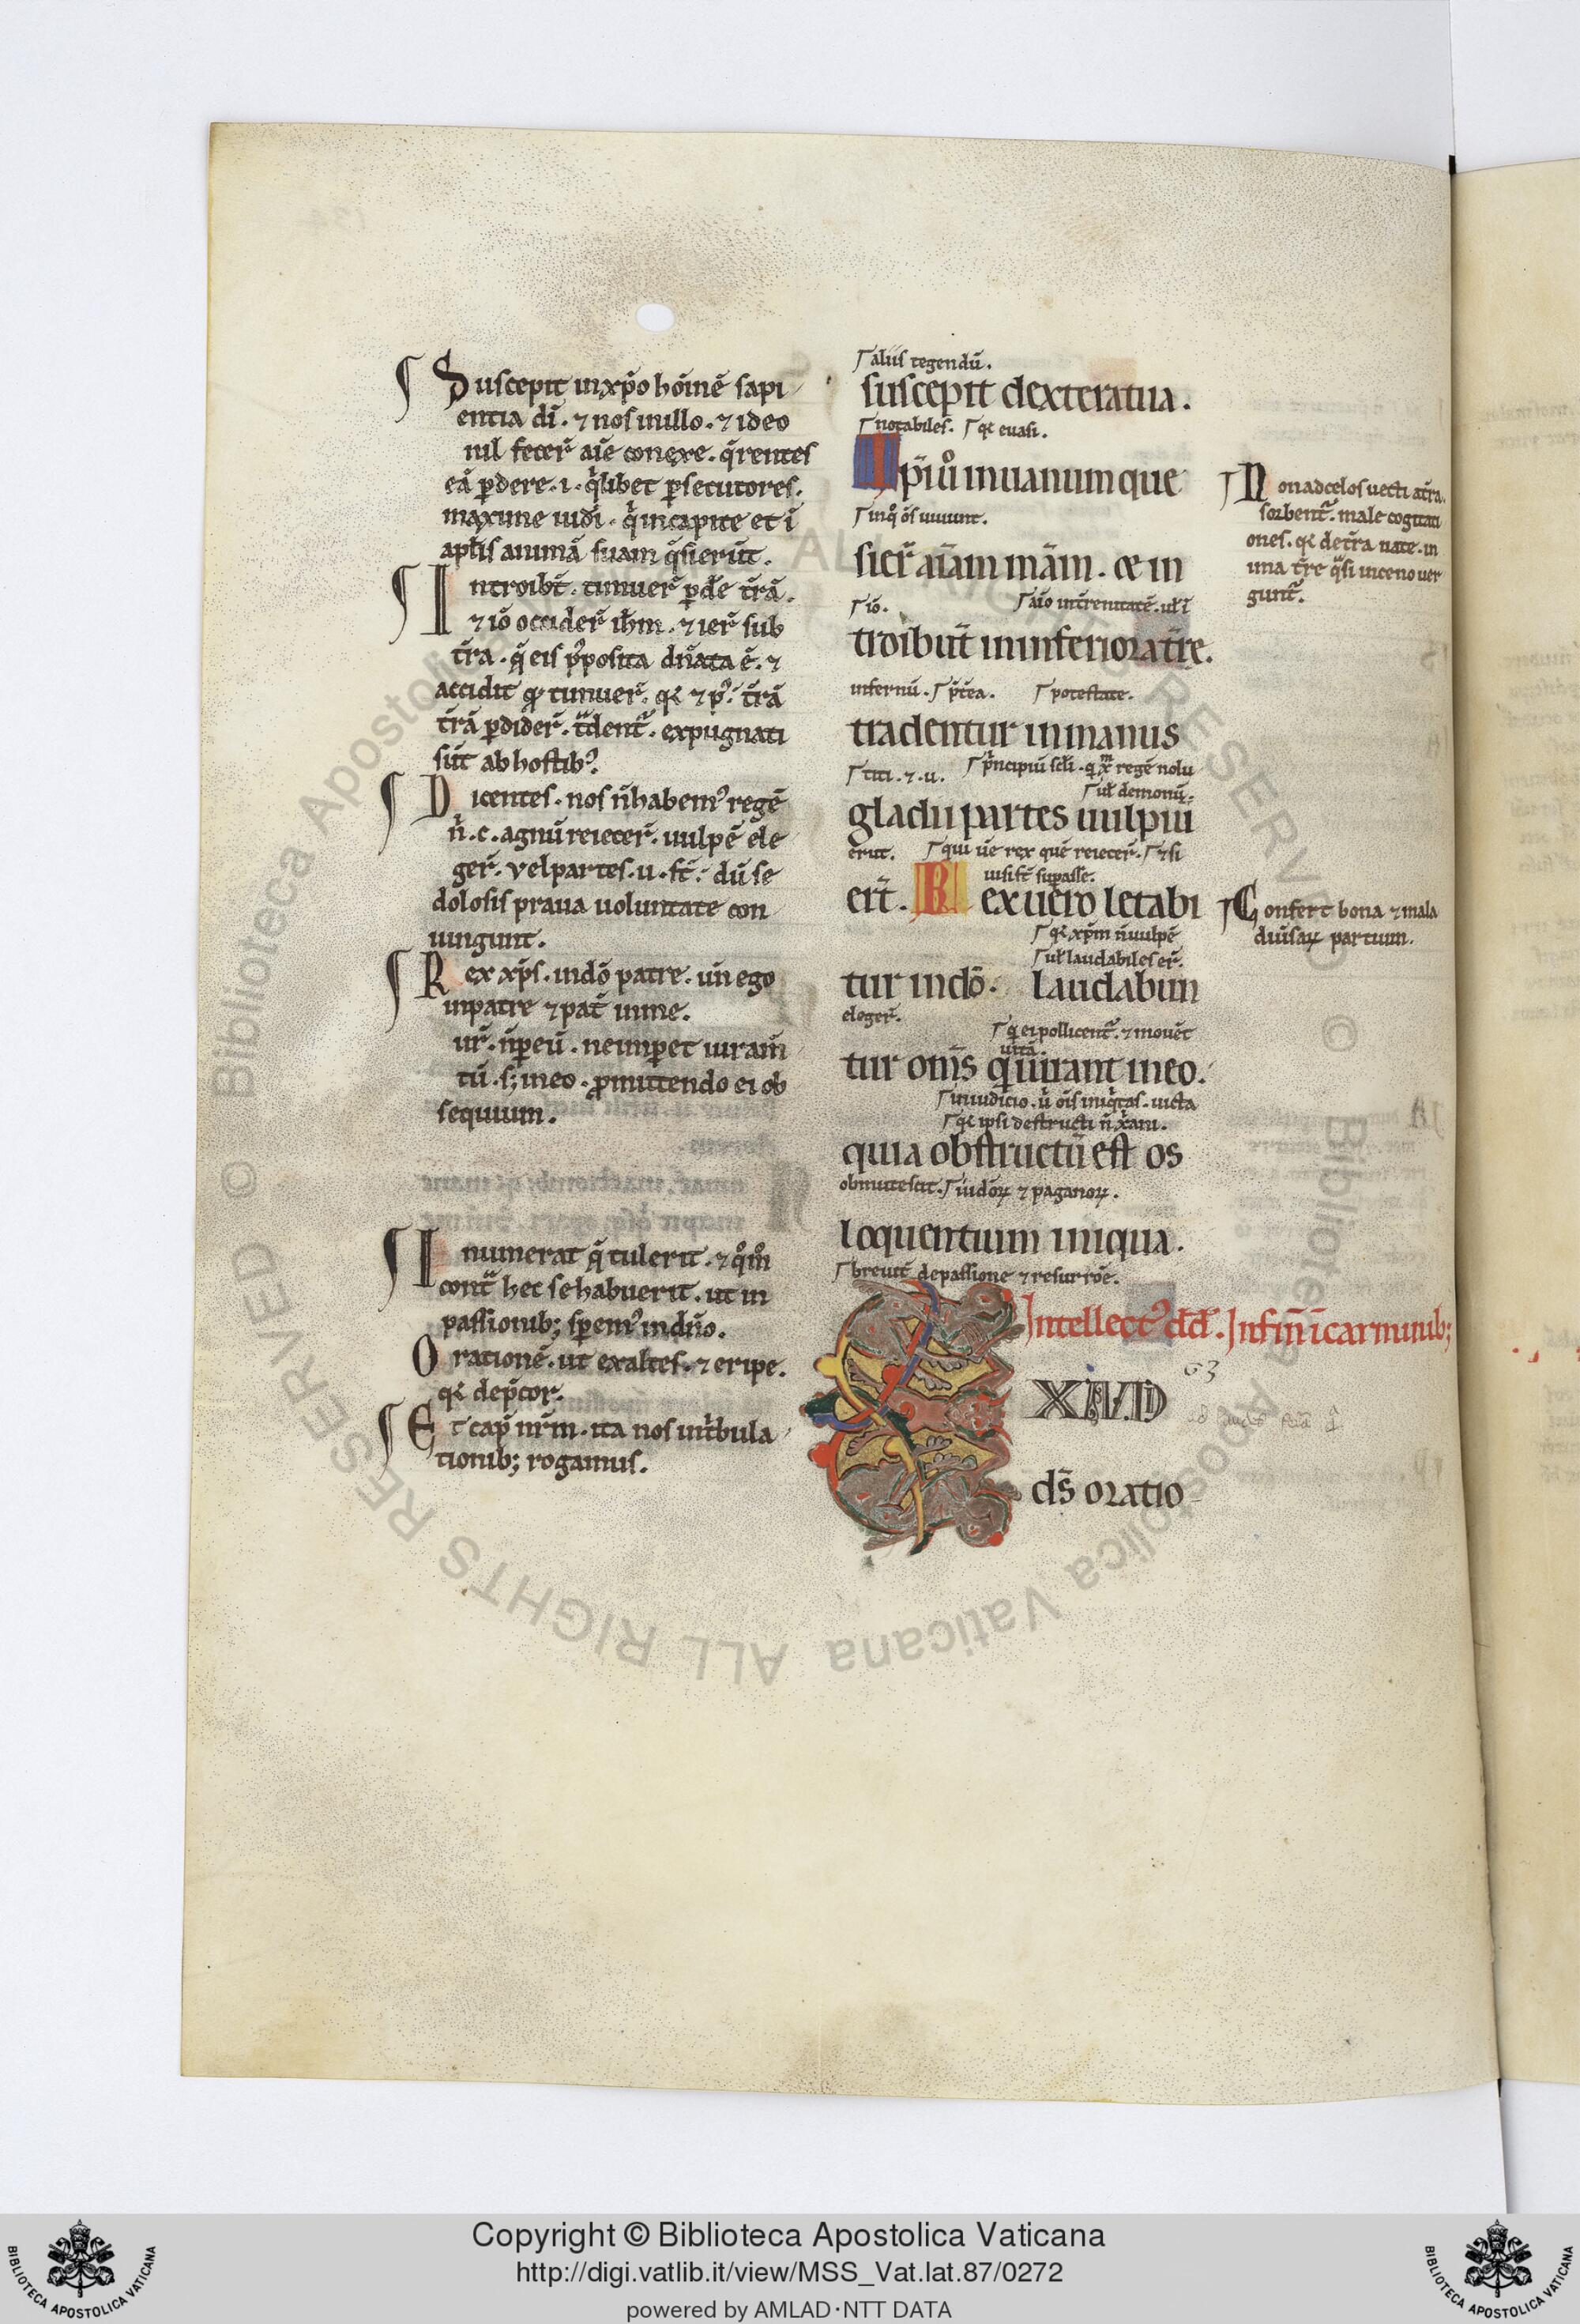 Suscepit in xp̄o hōinē sapi
entia dī. ⁊ nos in illo. ⁊ ideo
nil fecer̄ aīe conexe. q̄rentes
eā ꝑdere .i. q̄libet ꝑsecutores.
maxime iudī. q̄ in capite et ī
aptīs animā suam q̄sierūt.
Introibt̄. timuer̄ ꝑdē tr̄ā.
⁊ iō occider̄ ihm̄. ⁊ ier̄ sub
tr̄a. q̄ eis p̄posita dn̄ata ē. ⁊
tr̄ā ꝑdider̄. tͣdent̄. expugnati
sūt ab hostibꝰ.
Dicentes. nos n̄ habemꝰ regē
n̄ .c. agnū reiecer̄. uulpē ele
ger̄. vel partes .u. st̄. dū se
dolosis praua uoluntate con
iungunt.
Rex xp̄s. in dō patre. un̄ ego
in patre ⁊ pat̄ in me.
iur̄. n̄ ꝑ eū. ne imꝑet iuram̄
tū. s; in eo. ꝓmittendo ei ob
sequium.
Inumerat q̄ tulerit. ⁊ qͦmͦ
contͣ hec se habuerit. ut in
passionib; sꝑemꝰ in dn̄o.
Orationē. ut exaltes. ⁊ eripe.
qꝛ dep̄cor.
Et cap̄ nr̄m. ita nos in tͥbula
tionib; rogamus.
aliis tegendū.
suscepit dextera tua.
notabiles. qꝛ euasi.
Ipsi uͦ in uanum que
inqͦ ōs uiuunt.
sier̄ aīam mām. & in
iō.
troibūt in inferiora tr̄re.
infernū. p̄tea. potestate.
tradentur in manus
titi. ⁊ .u. p̄ncipiū scl̄i. regē nolu
ul̄ demonū.
gladii partes uulpiū
erūt. qui ūe rex quē reiecer̄. ⁊ si
uisi st̄ suꝑasse.
ert̄. Rex uero letabi
qꝛ xp̄m n̄ uulpē
ul̄ laudabiles er̄.
tur in dō. laudabun
eleger̄.
q̄ ei pollicent̄. ⁊ mouēt
uitā.
tur om̄s qͥ iurant in eo.
in iudicio. oīs iniqͥtas. uicta
qꝛ ipsi destructi
quia obstructū est os
obmutescit. iudōꝝ ⁊ paganoꝝ.
loquentium iniqua.
breuit̄ de passione ⁊ resurrōe.
Intellectꝰ dd̄. In fin̄ ī carminib;
63
EXAVDI
ds̄ oratio
Non ad celos uecti a tr̄a.
sorbent̄. male cogitati
ones. qꝛ de tr̄a nate. in
una tr̄e qͣsi in ceno uer
gunt̄.
Confert bona ⁊ mala
duīsaꝝ partium.
Copyright © Biblioteca Apostolica Vaticana
http://digi.vatlib.it/view/MSS_Vat.lat.87/0272
powered by AMLAD·NTT DATA
BIBLIOTECA APOSTOLICA VATICANA
BIBLIOTECA APOSTOLICA VATICANA
© Biblioteca Apostolica Vaticana ALL RIGHTS RESERVED